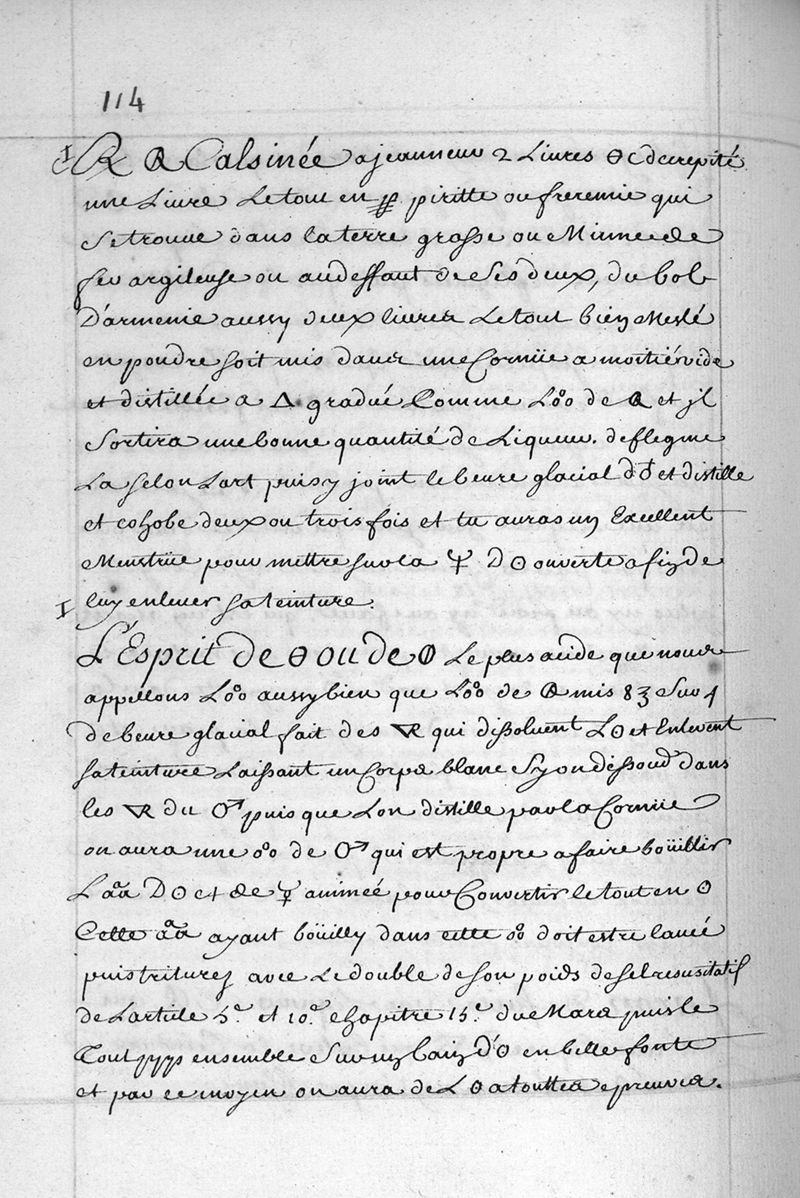 114
℞ Calsinée a jeauneur 2 Livres decrepité
une Livre Le tout en piritte ou freremie qui
se trouve dans la terre grasse ou Minne de
feu argileuse ou au deffaut de ses deux, du bol
D'armenie aussy deux livres Le tout bien Meslé
en poudre soit mis dans une Cornüe a moitié vide
et distillée a △ gradué Comme L'oo de et jl
Sortira une bonne quantité de Liqueur. deflegme
La selon Lart puis y joint le beure glacial d'♁ et distille
et cohobe deux ou trois fois et tu auras un Excellent
Menstrüe pour mettre sur la D ☉ ouverte afin de
luy enlever sa teinture.
L'Esprit de ou de Le plus acide que nous
appellons L'oo aussy bien que L'oo de mis 8 ℥ sur 4
de beure glacial fait des qui dissoluent L☉ et Enlevent
sa teinture Laissant un Corps blanc Sy on dessoud Dans
les du ♂ puis que Lon distille par la Cornüe
on aura une oo de ♂ qui est propre a faire boüillir
L'aaa D ☉ et de ☿ animée pour Convertir le tout en ☉
Cette aaa ayant boüilly dans cette oo doit estre lavée
puis triturez avec Le double de son poids de sel resusitatif
de Lartile 5e. et 10e. chapitre 15e. du Mars puis le
Tout ensemble Sur un bain d'☉ en belle fonte
et par ce moyen on aura de L ☉ a touttes epreuves.